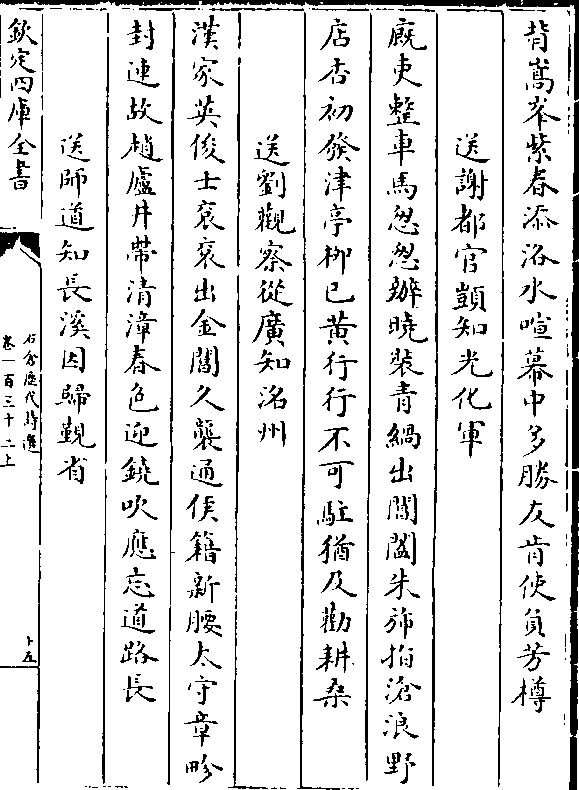 背嵩峯紫春添洛水喧幕中多勝友肯使負芳樽
送謝都官顗知光化軍
廐吏整車馬怱怱辦曉裝青緺出閶闔朱斾指滄浪野
店杏初發津亭柳已黃行行不可駐猶及勸耕桑
送劉觀察從廣知洺州
漢家英俊士衮衮出金閨久襲通侯籍新腰太守章畛
封連故趙廬井帶清漳春色迎鐃吹應忘道路長
送師道知長溪因歸覲省
欽定四庫全書
石倉歷代詩選
卷一百三十二上
十五